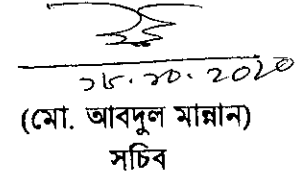 ২৮.১০.২০২০
(মো. আবদুল মান্নান)
সচিব